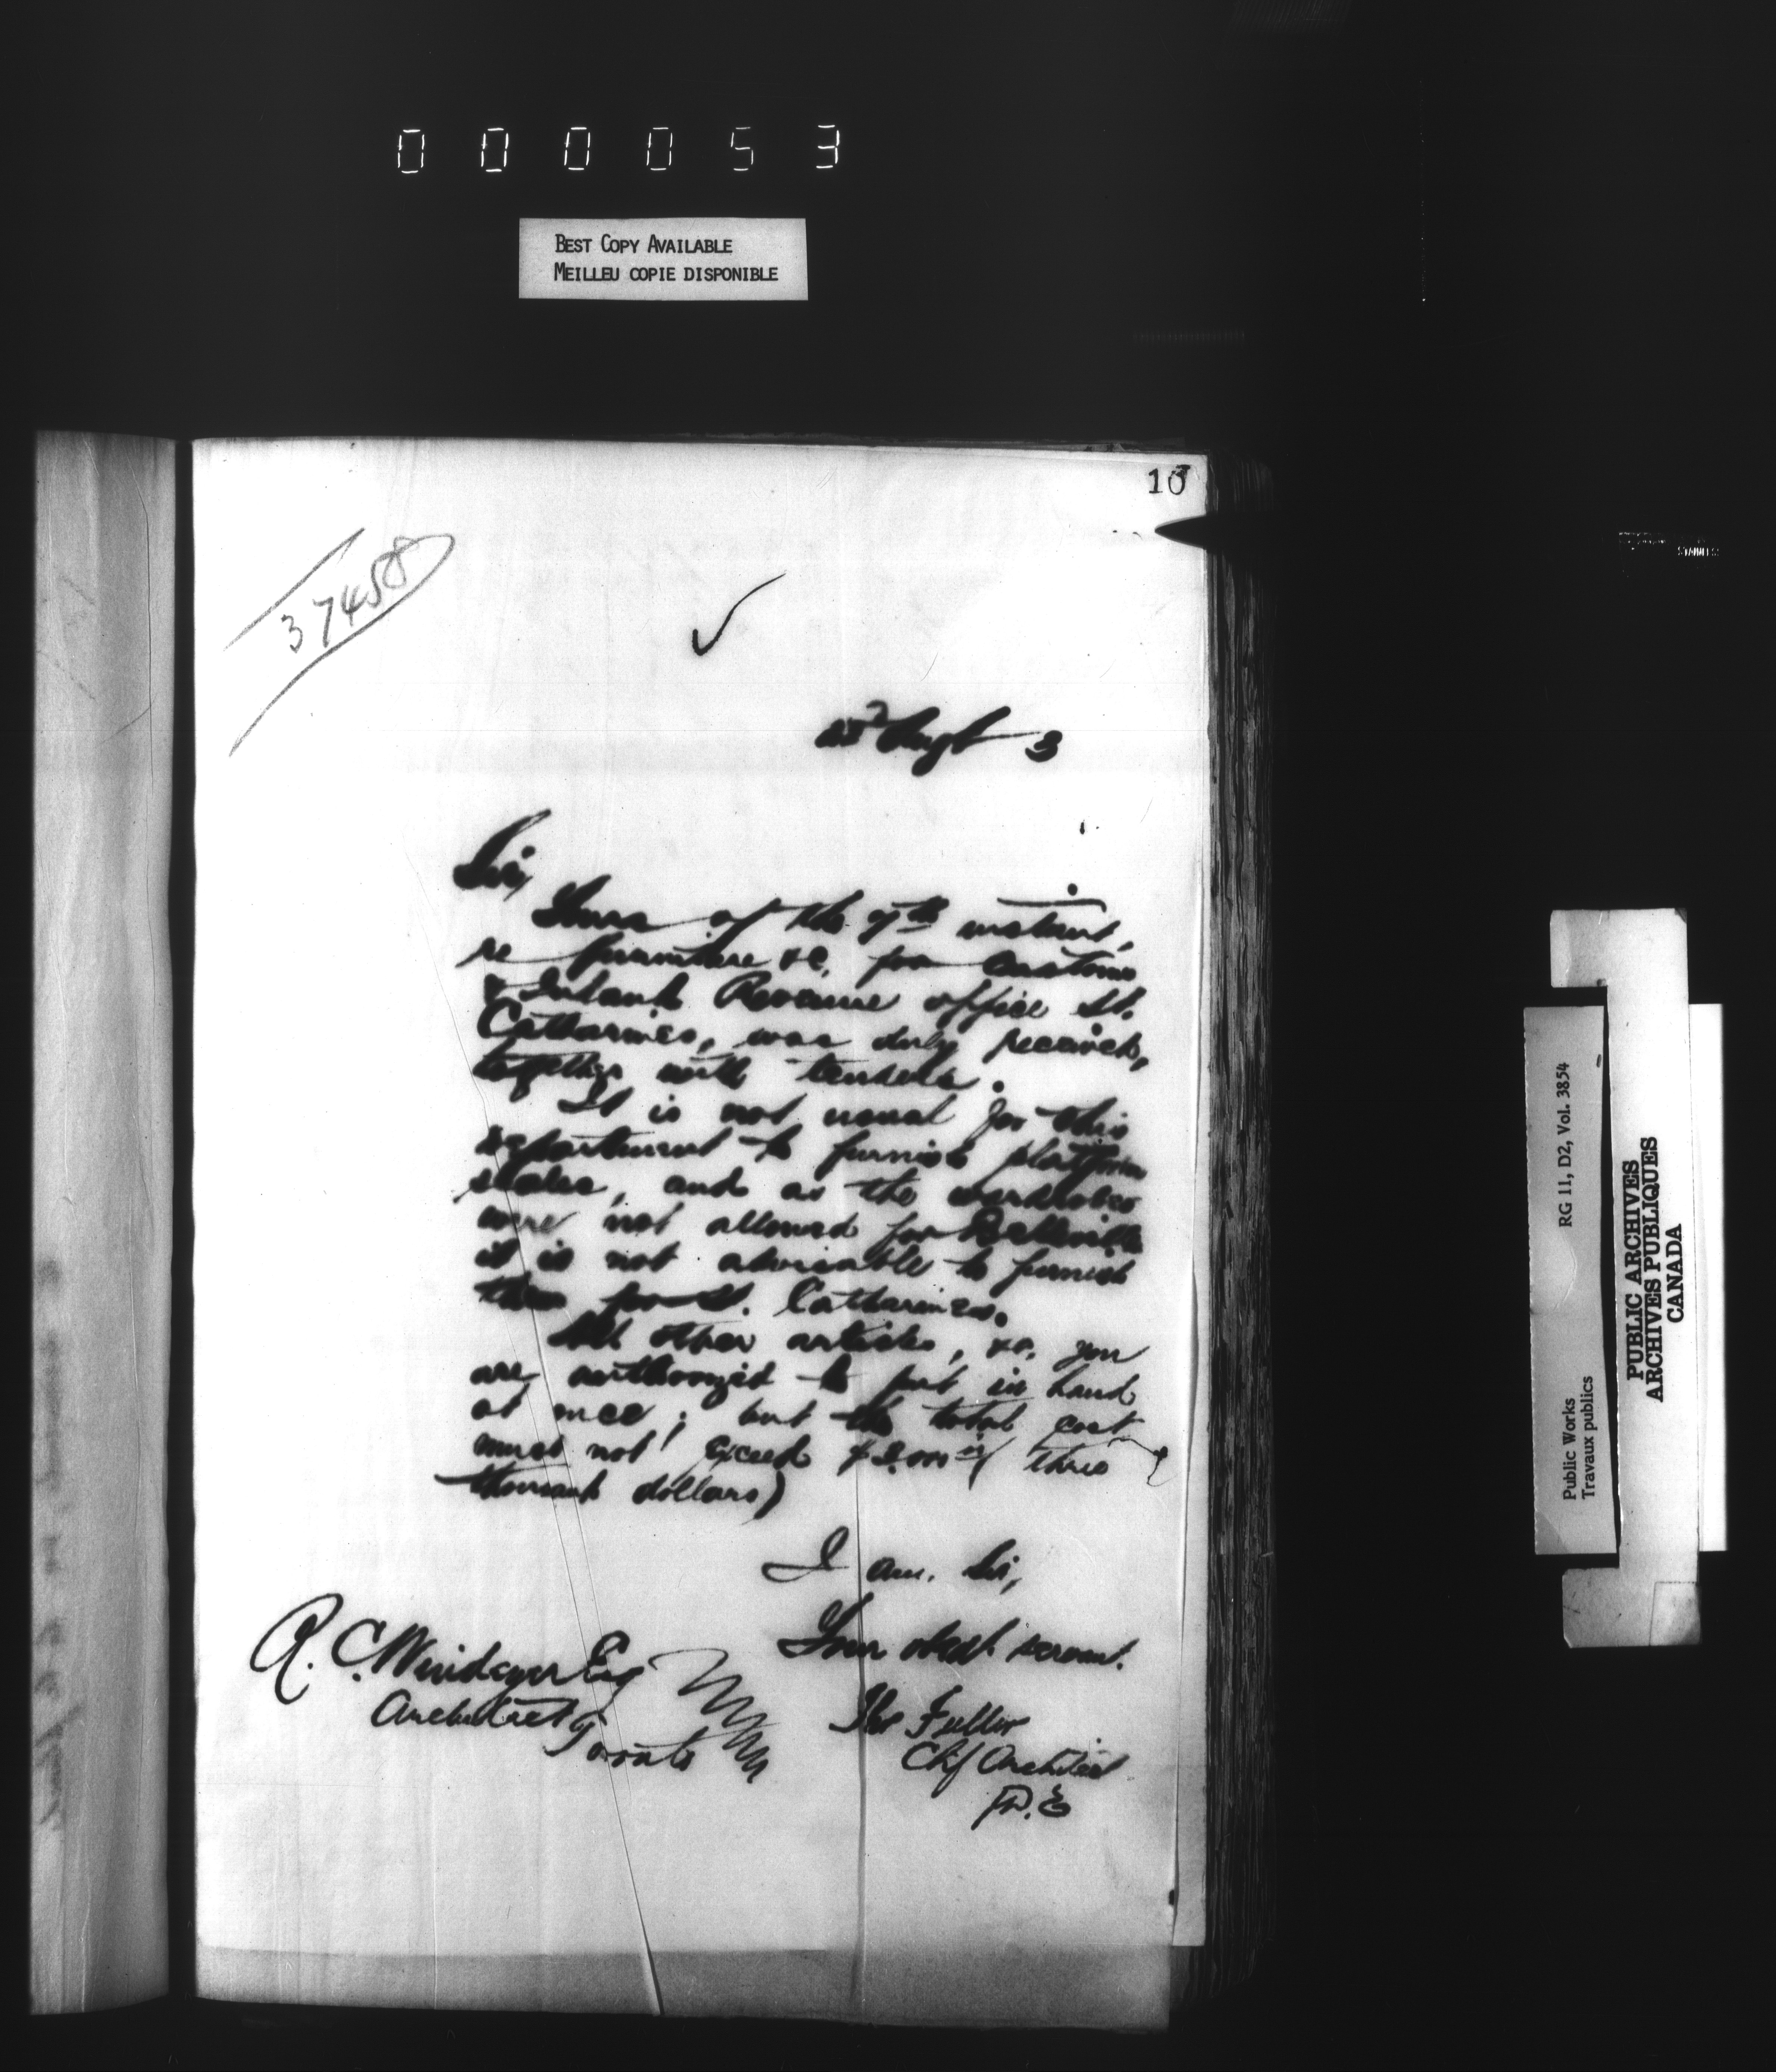 000053
BEST COPY AVAILABLE
MEILLEU COPIE DISPONIBLE
10
37458
Augt 3
Sir,
Yours of the 9th instant,
re furniture &c, for Customs
& Inland Revenue office St.
Catharines, was duly received,
together with tenders.
It is not usual for this
department to furnish platform
scales, and as the wardrobes
were not allowed for Belleville
it is not advisable to furnish
them for St. Catharines.
All other articles, &c, you
are authorized to put in hand
at once; but the total cost
must not exceed (three
thousand dollars)
I am. Sir,
Your obedt. servant.
R. C. Windeyer Esq
Architect
Toronto
Thos Fuller
Chf Architect
RG 11, D2, Vol. 3854
Public Works
Travaux publics
PUBLIC ARCHIVES
ARCHIVES PUBLIQUES
CANADA